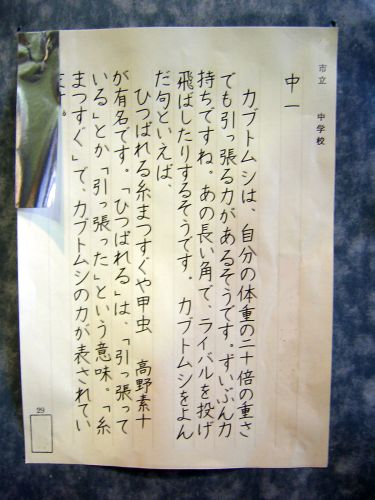 市立　中学校
中一
カブトムシは、自分の体重の二十倍の重さ
でも引っ張る力があるそうです。ずいぶん力
持ちですね。あの長い角で、ライバルを投げ
飛ばしたりするそうです。カブトムシをよん
だ句といえば、
ひっぱれる糸まつすぐや甲虫　高野素十
が有名です。「ひつぱれる」は、「引っ張って
いる」とか「引っ張った」という意味。「糸
まつすぐ」で、カブトムシの力が表されてい
ます。
29